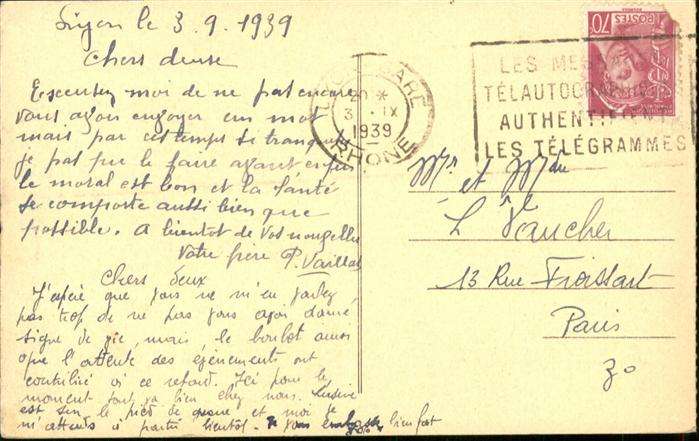 Lyon le 3.9.1939
Chers deux
Excusez moi de ne pas encore
vous avoir envoyer un mot
mais par ces temps si
je pas pu le faire avant enfin
le moral est bon et la santé
se comporte aussi bien que
possible. A bientot de vos nouvelles
Votre frère P. Vaillat
Chers deux
J'espère que vous ne m'en
pas trop de ne pas vous avoir donné
signe de vie, mais, le boulot ainsi
que l'attente des évènements ont
contribué à ce retard. Ici pour le
moment tout va bien chez nous.
est sur le pied de guerre et moi je
m'attends à partir bientot. Je vous embrasse bien fort
LYON GARE
20 *
3 - IX
1939
RHONE
70c
POSTES
LES MESSAGES
TÉLAUTOGRAPHIQUES
AUTHENTIFIENT
LES TÉLÉGRAMMES
Mr et Mme
L Vaucher
13 Rue Froissart
Paris
3e